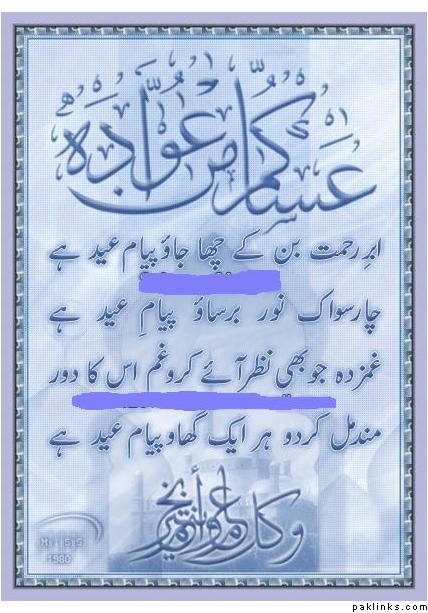 عساكم من عوّاده
ابرِ رحمت بن کے چھا جاؤ پیام عید ہے
چار سو اک نور برساؤ پیامِ عید ہے
غمزدہ جو بھی نظر آئے کرو غم اس کا دور
مندمل کر دو ہر ایک گھاو پیام عید ہے
وكل عام وأنتم بخير
1980
paklinks.com